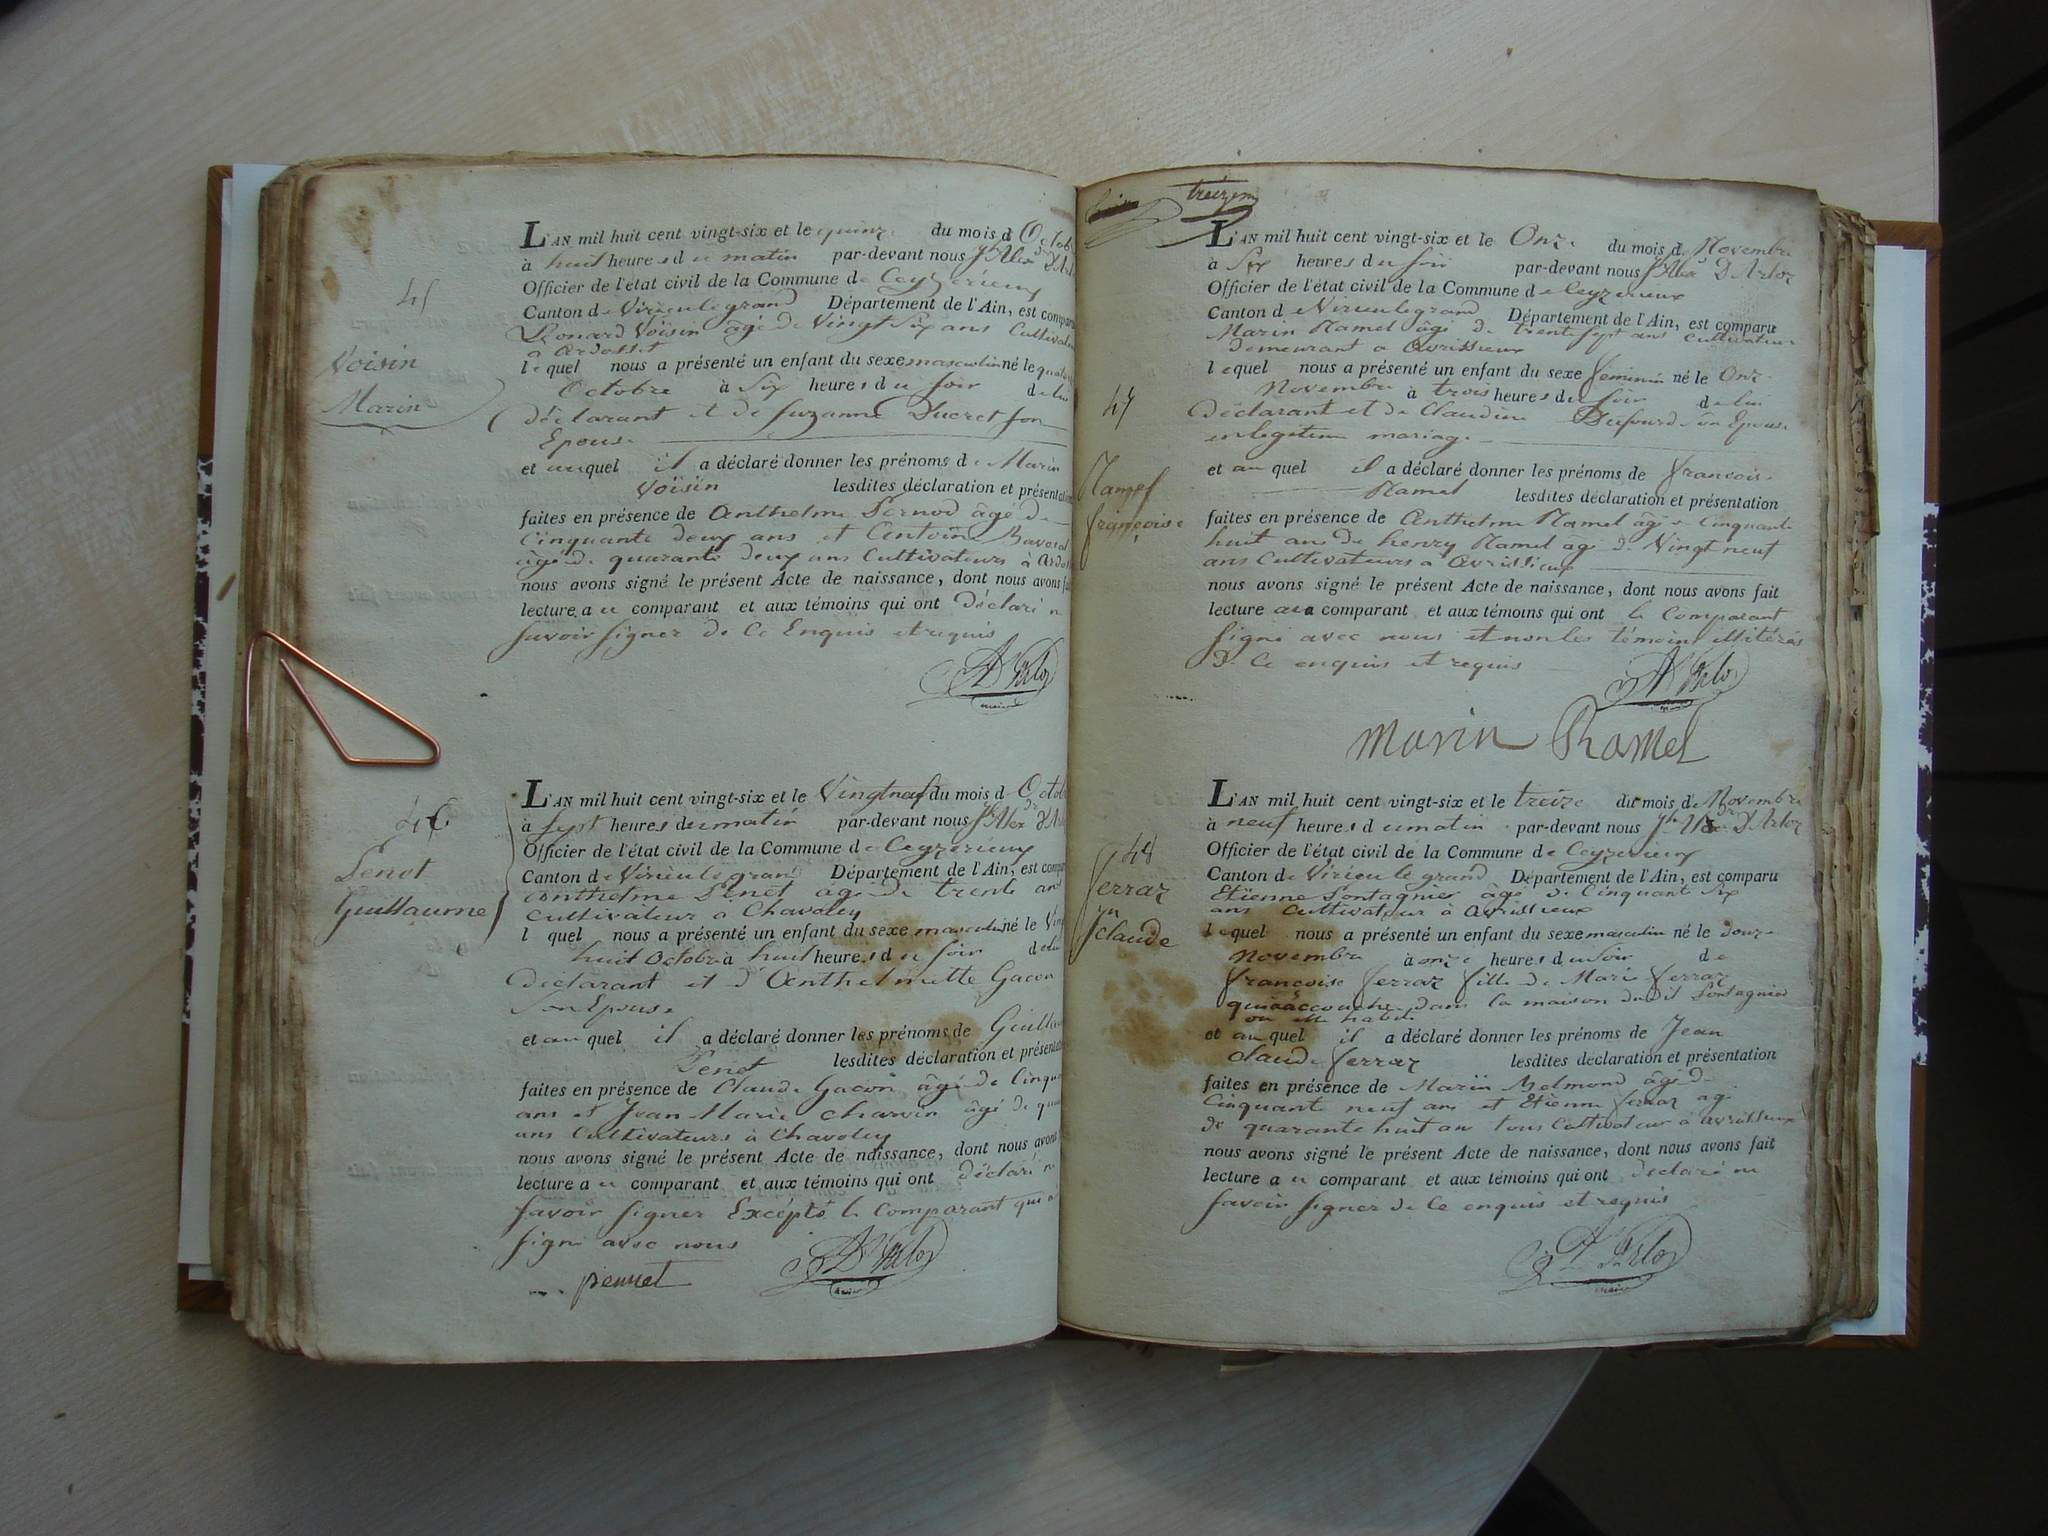 45
Voisin
Marin
L'AN mil huit cent vingt-six et le quinze du mois d Octob
à huit heures du matin par-devant nous Jh Alex dre D'Arl
Officier de l'état civil de la Commune de Ceyzerieux
Canton de Virieulegrand Département de l'Ain, est comparu
Leonard Voisin âgé de Vingt Six ans Cultivate
a ardosset
lequel nous a présenté un enfant du sexe masculin né le quato
Octobre à Six heures du soir de lui
déclarant et de Suzanne Ducret son
Epouse
et auquel il a déclaré donner les prénoms de Marin
Voisin lesdites déclaration et présentat
faites en présence de Anthelme Pernod âgé de
Cinquante deux ans et Antoine
âgé de quarante deux ans Cultivateurs à Ardos
nous avons signé le présent Acte de naissance, dont nous avons fai
lecture au comparant et aux témoins qui ont déclaré n
savoir signer de Ce Enquis et requis
D'Arloz
maire
46
Penot
Guillaume
L'AN mil huit cent vingt-six et le Vingtneuf du mois d Octob
à sept heures du matin par-devant nous Jh Alex dre D'Arl
Officier de l'état civil de la Commune de Ceyzerieux
Canton de Virieulegrand Département de l'Ain, est compa
anthelme Penet âgé de trente ans
Cultivateur a Chavoley
l quel nous a présenté un enfant du sexe masculin né le Vin
huit Octobre à huit heures du soir de lui
Déclarant et d'Anthelmette Gacon
son Epouse
et auquel il a déclaré donner les prénoms de Guillau
Penet lesdites déclaration et présentat
faites en présence de Claude Gacon âgé de Cinqua
ans et Jean Marie Charvin âgé de qua
ans Cultivateurs à Chavoley
nous avons signé le présent Acte de naissance, dont nous avons
lecture au comparant et aux témoins qui ont déclaré n
savoir signer Excépté le Comparant qui a
signé avec nous
pennet D'Arloz
maire
treizem
47
Ramel
françoise
L'AN mil huit cent vingt-six et le Onze du mois de Novembre
à Six heures du soir par-devant nous Jh Alex dre D'Arloz
Officier de l'état civil de la Commune de Ceyzerieux
Canton de Virieulegrand Département de l'Ain, est comparu
Marin Ramel âgé de trente sept ans Cultivateur
demeurant a avrissieux
lequel nous a présenté un enfant du sexe feminin né le Onze
Novembre à trois heures du soir de lui
déclarant et de Claudine Dufourd son Epouse
en legitime mariage
et au quel il a déclaré donner les prénoms de francoise
Ramel lesdites déclaration et présentation
faites en présence de Anthelme Ramel âgé e Cinquante
huit ans de henry Ramel âgé de Vingt neuf
ans Cultivateurs a avrissieux
nous avons signé le présent Acte de naissance, dont nous avons fait
lecture au comparant et aux témoins qui ont le Comparant
signé avec nous et non les témoins illitérés
de Ce enquis et requis
D'Arloz
marin Ramel
48
ferraz
jn
claude
L'AN mil huit cent vingt-six et le treize du mois de Novembre
à neuf heures du matin par-devant nous Jh Alex dre D'Arloz
Officier de l'état civil de la Commune de Ceyzerieux
Canton de Virieu le grand Département de l'Ain, est comparu
Etienne Pontagnier âgé de Cinquant Six
ans Cultivateur à avrissieux
lequel nous a présenté un enfant du sexe masculin né le douze
Novembre à onze heures du soir de
francoise ferraz fille de Marie ferraz
qui a accouché dans la maison dudit Pontagnier
ou elle habite
et au quel il a déclaré donner les prénoms de Jean
claude ferraz lesdites déclaration et présentation
faites en présence de Marin âgé de
Cinquante neuf ans et Etienne ferraz agé
de quarante huit ans tous Cultivateur à avrissieux
nous avons signé le présent Acte de naissance, dont nous avons fait
lecture au comparant et aux témoins qui ont déclaré ne
savoir signer de Ce enquis et requis
D'Arloz
maire